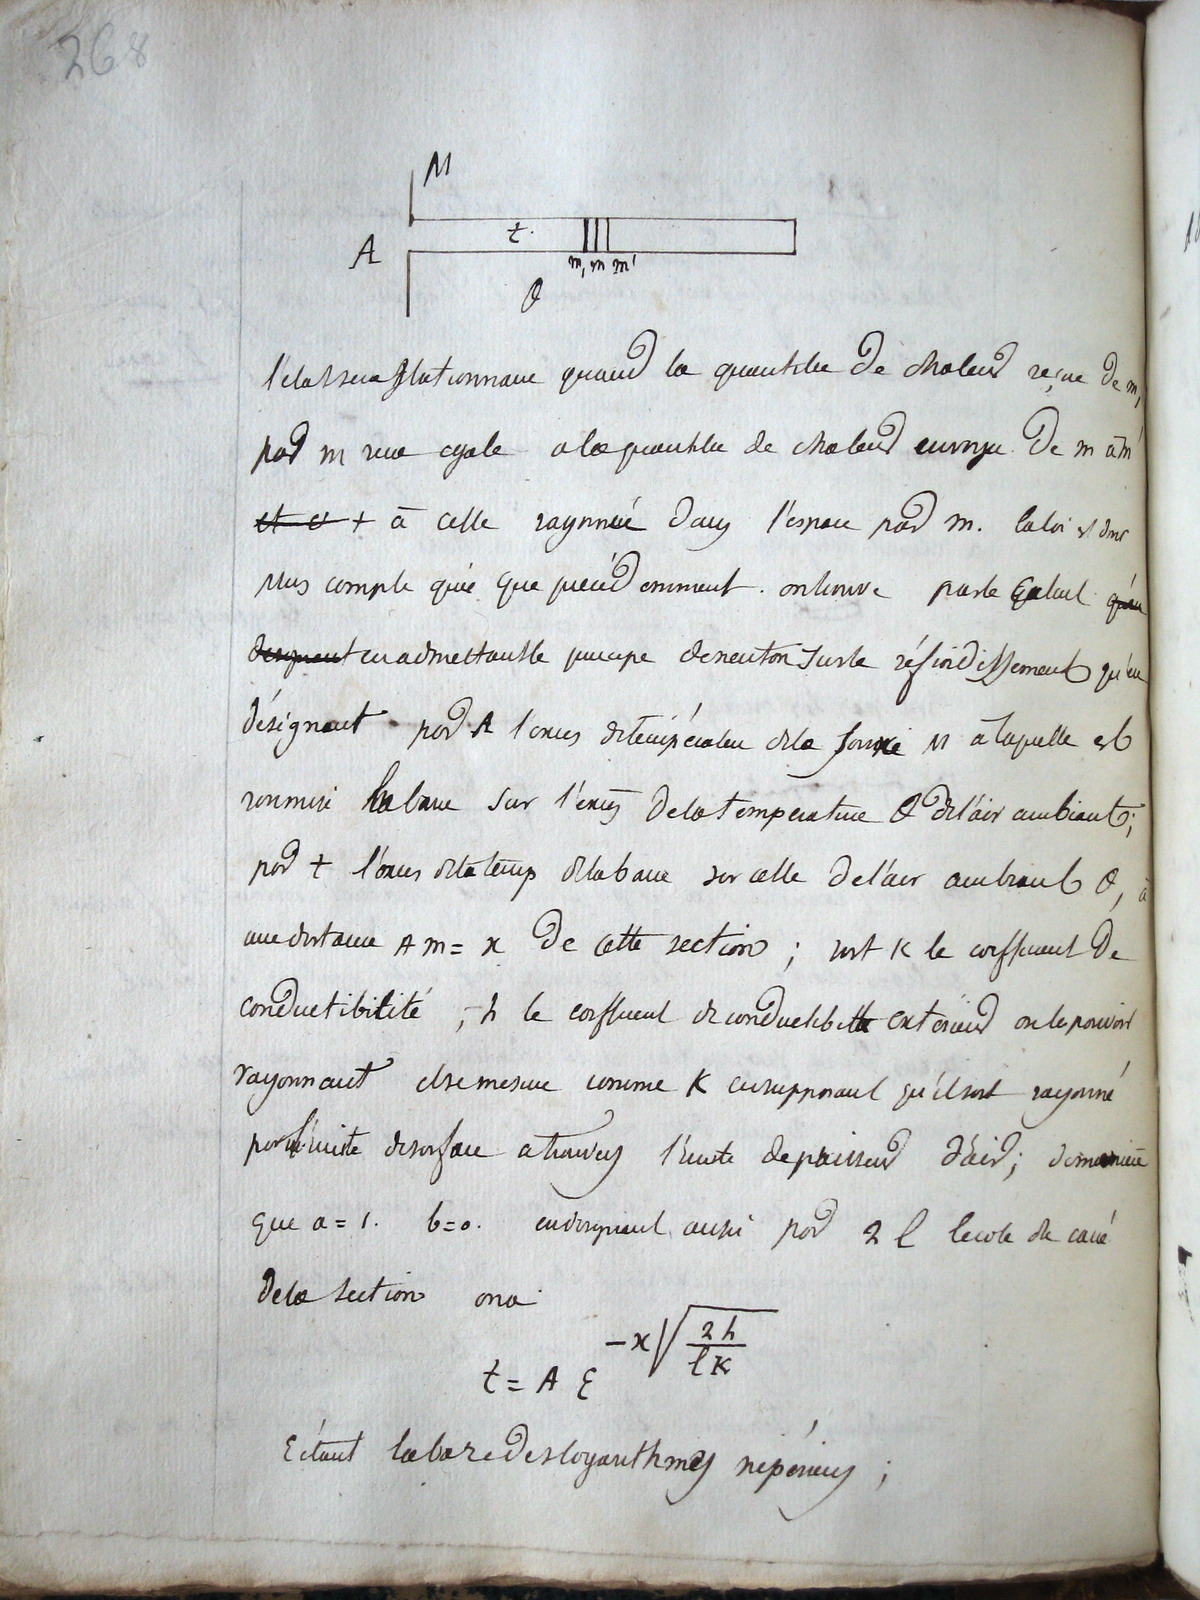 268
M
A
t.
m, m m'
θ
l'état sera stationnaire quand la quantité de chaleur reçue de m,
par m sera égale a la quantité de chaleur envoyée de m à m'
+ à celle rayonnée dans l'espace par m. la loi est donc
plus compliquée que précédemment. on trouve par le calcul
en admettant le principe de neuton sur le réfroidissement qu'en
désignant par A l'exces de température de la source M à laquelle est
soumise la barre sur l'excés de la température θ de l'air ambiant;
par t l'exces de la temp de la barre sur celle de l'air ambiant θ, à
une distance Am = x de cette section ; soit K le coefficient de
conductibilité, h le coefficient de conductibilité extérieur ou le pouvoir
rayonnant et se mesure comme K en supposant qu'il soit rayonné
par l'unité de surface a travers l'unité d'epaisseur d'air; de manière
que a = 1. b = 0. en désignant aussi par 2 l le coté du carré
de la section on a
t = A ε^{-x√(2h/lK)}
ε étant la base des logarithmes népériens ;